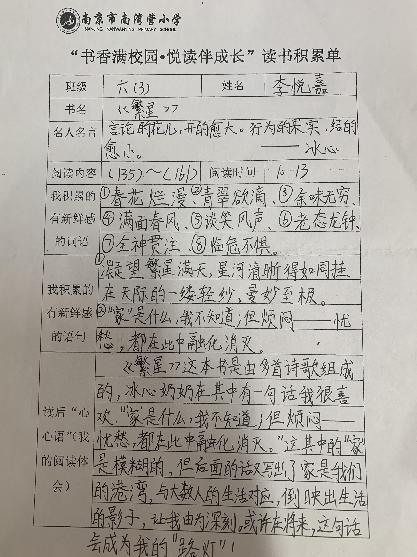 南京市南湾营小学
NANJING NANWANYING PRIMARY SCHOOL
“书香满校园·悦读伴成长”读书积累单
班级 六(3) 姓名 李悦嘉
书名 《繁星》
名人名言 言论的花儿,开的愈大。行为的果实,结的
愈小。 ——冰心
阅读内容 (135)~(161) 阅读时间 10-13
我积累的有新鲜感的词语 ①春花烂漫、②青翠欲滴、③余味无穷、
④满面春风、⑤谈笑风声、⑥老态龙钟、
⑦全神贯注、⑧临危不惧。
我积累的有新鲜感的语句 ①凝望繁星满天,星河清晰得如同挂
在天际的一缕轻纱,曼妙至极。
②“家”是什么,我不知道;但烦闷——忧
愁,都在此中融化消灭。
读后“心心语”(我的阅读体会) 《繁星》这本书是由多首诗歌组成
的,冰心奶奶在其中有一句话我很喜
欢:“家是什么,我不知道;但烦闷——
忧愁,都在此中融化消灭。”这其中的“家”
是模糊的,但后面的话又写出了家是我们
的港湾,与大数人的生活对应,倒映出生活
的影子,让我由为深刻。或许在将来,这句话
会成为我的“路灯”!